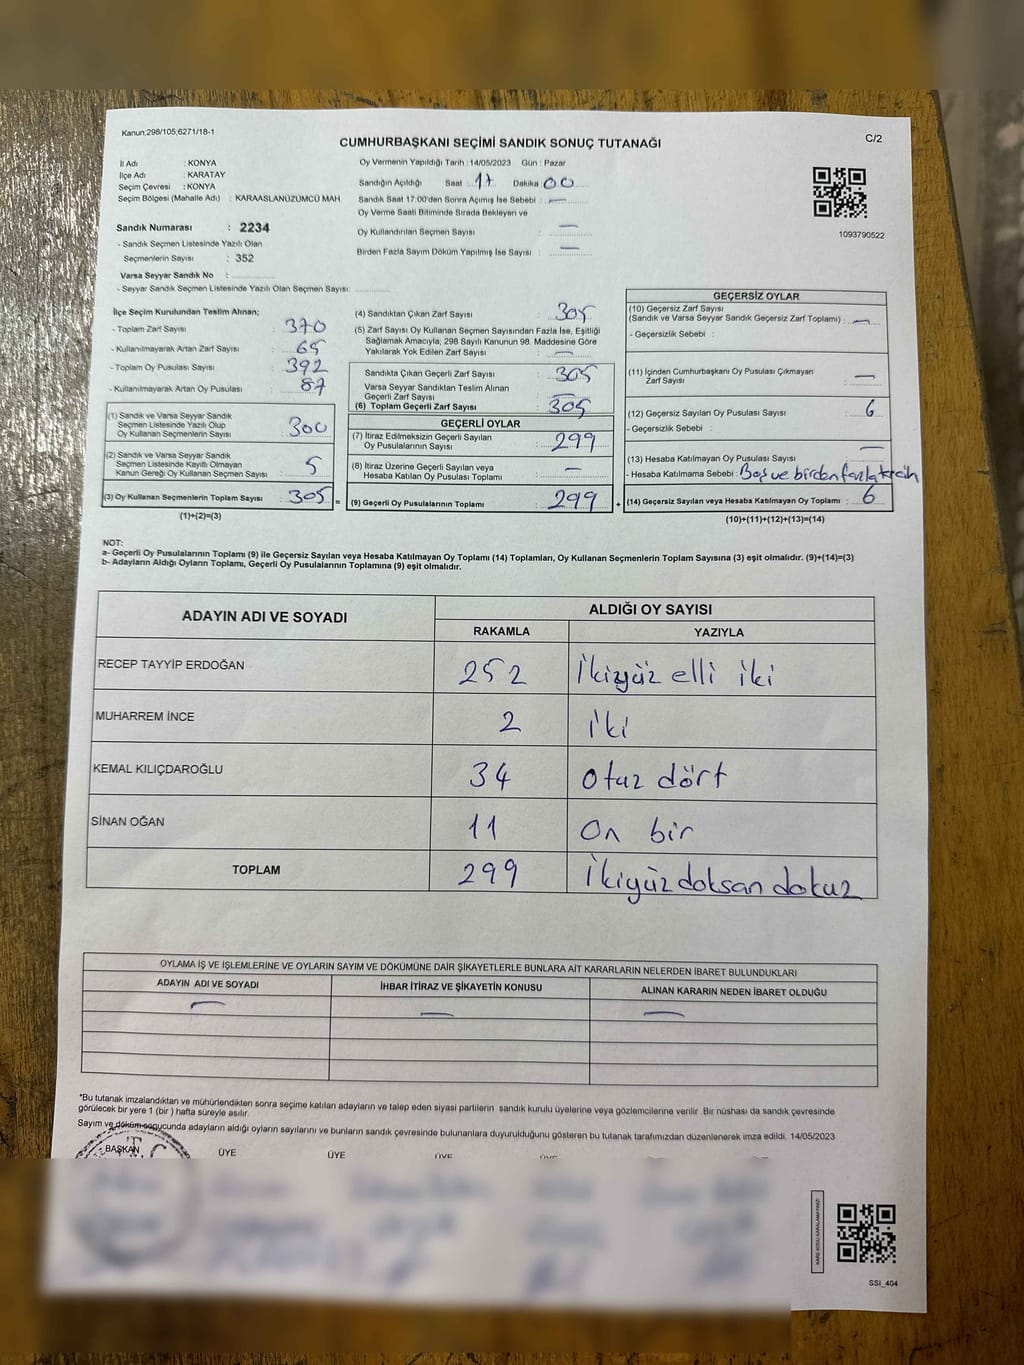 Kanun;298/105;6271/18-1
CUMHURBAŞKANI SEÇİMİ SANDIK SONUÇ TUTANAĞI
C/2
İl Adı : KONYA
İlçe Adı : KARATAY
Seçim Çevresi : KONYA
Seçim Bölgesi (Mahalle Adı) : KARAASLANÜZÜMCÜ MAH.
Sandık Numarası : 2234
- Sandık Seçmen Listesinde Yazılı Olan
Seçmenlerin Sayısı : 352
Varsa Seyyar Sandık No :
- Seyyar Sandık Seçmen Listesinde Yazılı Olan Seçmen Sayısı:
Oy Vermenin Yapıldığı Tarih :14/05/2023 Gün : Pazar
Sandığın Açıldığı Saat : 17 Dakika 00
Sandık Saat 17:00'den Sonra Açımış İse Sebebi : —
Oy Verme Saati Bitiminde Sırada Bekleyen ve
Oy Kullandırılan Seçmen Sayısı : —
Birden Fazla Sayım Döküm Yapılmış İse Sayısı : —
1093790522
İlçe Seçim Kurulundan Teslim Alınan;
- Toplam Zarf Sayısı : 370
- Kullanılmayarak Artan Zarf Sayısı : 65
- Toplam Oy Pusulası Sayısı : 392
- Kullanılmayarak Artan Oy Pusulası : 87
(1) Sandık ve Varsa Seyyar Sandık
Seçmen Listesinde Yazılı Olup
Oy Kullanan Seçmenlerin Sayısı : 300
(2) Sandık ve Varsa Seyyar Sandık
Seçmen Listesinde Kayıtlı Olmayan
Kanun Gereği Oy Kullanan Seçmen Sayısı : 5
(3) Oy Kullanan Seçmenlerin Toplam Sayısı : 305 =
(1)+(2)=(3)
(4) Sandıktan Çıkan Zarf Sayısı : 305
(5) Zarf Sayısı Oy Kullanan Seçmen Sayısından Fazla İse, Eşitliği
Sağlamak Amacıyla, 298 Sayılı Kanunun 98. Maddesine Göre
Yakılarak Yok Edilen Zarf Sayısı : —
Sandıkta Çıkan Geçerli Zarf Sayısı : 305
Varsa Seyyar Sandıktan Teslim Alınan
Geçerli Zarf Sayısı : —
(6) Toplam Geçerli Zarf Sayısı : 305
GEÇERLİ OYLAR
(7) İtiraz Edilmeksizin Geçerli Sayılan
Oy Pusulalarının Sayısı : 299
(8) İtiraz Üzerine Geçerli Sayılan veya
Hesaba Katılan Oy Pusulası Toplamı : —
(9) Geçerli Oy Pusulalarının Toplamı : 299 +
GEÇERSİZ OYLAR
(10) Geçersiz Zarf Sayısı
(Sandık ve Varsa Seyyar Sandık Geçersiz Zarf Toplamı) : —
- Geçersizlik Sebebi :
(11) İçinden Cumhurbaşkanı Oy Pusulası Çıkmayan
Zarf Sayısı : —
(12) Geçersiz Sayılan Oy Pusulası Sayısı : 6
- Geçersizlik Sebebi :
(13) Hesaba Katılmayan Oy Pusulası Sayısı : —
- Hesaba Katılmama Sebebi : Boş ve birden fazla tercih
(14) Geçersiz Sayılan veya Hesaba Katılmayan Oy Toplamı : 6
(10)+(11)+(12)+(13)=(14)
NOT:
a- Geçerli Oy Pusulalarının Toplamı (9) ile Geçersiz Sayılan veya Hesaba Katılmayan Oy Toplamı (14) Toplamları, Oy Kullanan Seçmenlerin Toplam Sayısına (3) eşit olmalıdır. (9)+(14)=(3)
b- Adayların Aldığı Oyların Toplamı, Geçerli Oy Pusulalarının Toplamına (9) eşit olmalıdır.
ADAYIN ADI VE SOYADI
ALDIĞI OY SAYISI
RAKAMLA YAZIYLA
RECEP TAYYİP ERDOĞAN 252 İkiyüz elli iki
MUHARREM İNCE 2 iki
KEMAL KILIÇDAROĞLU 34 otuz dört
SİNAN OĞAN 11 on bir
TOPLAM 299 İkiyüz doksan dokuz
OYLAMA İŞ VE İŞLEMLERİNE VE OYLARIN SAYIM VE DÖKÜMÜNE DAİR ŞİKAYETLERLE BUNLARA AİT KARARLARIN NELERDEN İBARET BULUNDUKLARI
ADAYIN ADI VE SOYADI İHBAR İTİRAZ VE ŞİKAYETİN KONUSU ALINAN KARARIN NEDEN İBARET OLDUĞU
— — —
*Bu tutanak imzalandıktan ve mühürlendikten sonra seçime katılan adayların ve talep eden siyasi partilerin sandık kurulu üyelerine veya gözlemcilerine verilir .Bir nüshası da sandık çevresinde
görülecek bir yere 1 (bir ) hafta süreyle asılır.
Sayım ve döküm sonucunda adayların aldığı oyların sayılarını ve bunların sandık çevresinde bulunanlara duyurulduğunu gösteren bu tutanak tarafımızdan düzenlenerek imza edildi. 14/05/2023
BAŞKAN ÜYE ÜYE ÜYE
T.C
SSİ_404